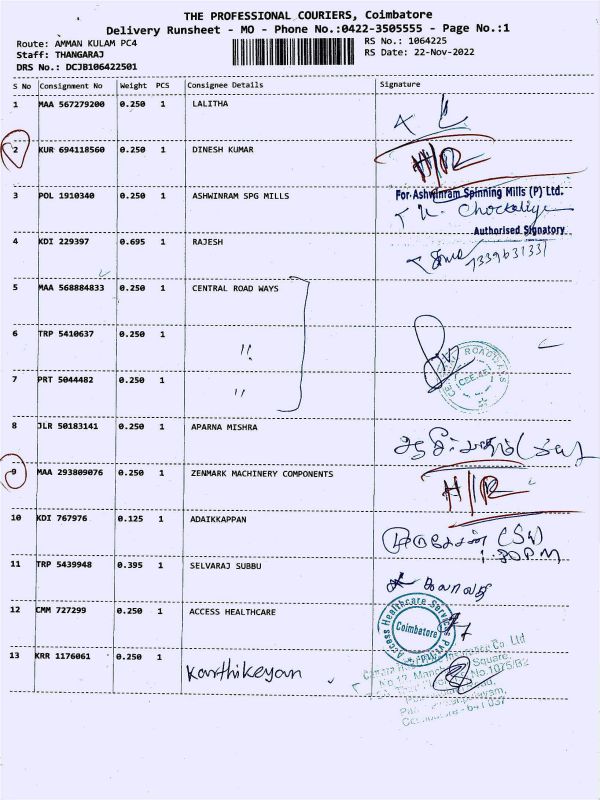 THE PROFESSIONAL COURIERS, Coimbatore
Delivery Runsheet - MO - Phone No.:0422-3505555 - Page No.:1
Route: AMMAN KULAM PC4
RS No.: 1064225
Staff: THANGARAJ
RS Date: 22-Nov-2022
DRS No.: DCJB106422501
S No Consignment No Weight PCS Consignee Details Signature
1 MAA 567279200 0.250 1 LALITHA
2 KUR 694118560 0.250 1 DINESH KUMAR
3 POL 1910340 0.250 1 ASHWINRAM SPG MILLS
For Ashwinram Spinning Mills (P) Ltd.
Authorised Signatory
4 KDI 229397 0.695 1 RAJESH
7339631331
5 MAA 568884833 0.250 1 CENTRAL ROAD WAYS
6 TRP 5410637 0.250 1 "
7 PRT 5044482 0.250 1 "
8 JLR 50183141 0.250 1 APARNA MISHRA
9 MAA 293809076 0.250 1 ZENMARK MACHINERY COMPONENTS
10 KDI 767976 0.125 1 ADAIKKAPPAN
1.30 P.M
11 TRP 5439948 0.395 1 SELVARAJ SUBBU
கலாவதி
12 CMM 727299 0.250 1 ACCESS HEALTHCARE
Access Healthcare Services
Coimbatore
13 KRR 1176061 0.250 1 Karthikeyan
Coimbatore - 641 037